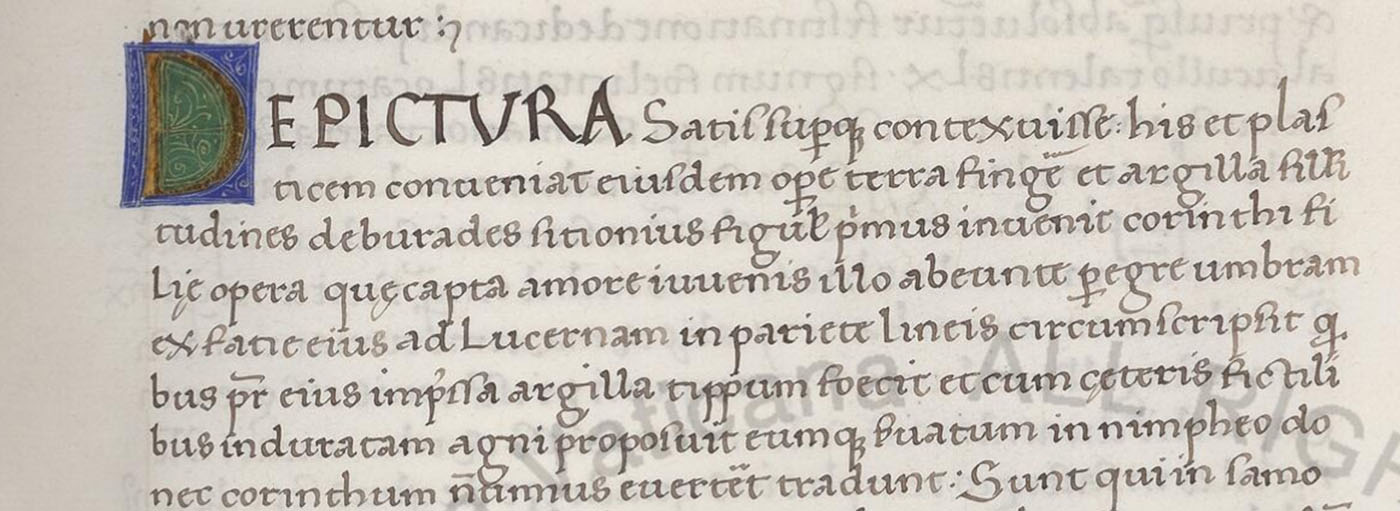 non urerentur :
DE PICTVRA Satis suꝑqꝫ contexuisse: his et plas
ticem conueniat eiusdem oꝑe terra fingẽ et argilla sil̃i
tudines deburades sitionius figul᷒ pⁱmus inuenit corinthi fi
lię opera quę capta amore iuuenis illo abeunte ꝑegre umbram
ex facie eius ad Lucernam in pariete lineis circumscripsit q.
bus pr̃ eius imp̃ssa argilla tippum foecit et cum cęteris fictili
bus induratam agni proposuit eumqꝫ s̃uatum in nimpheo do
nec corinthum mumius euertẽt tradunt: Sunt qui in samo
Vaticana ALL RIGH